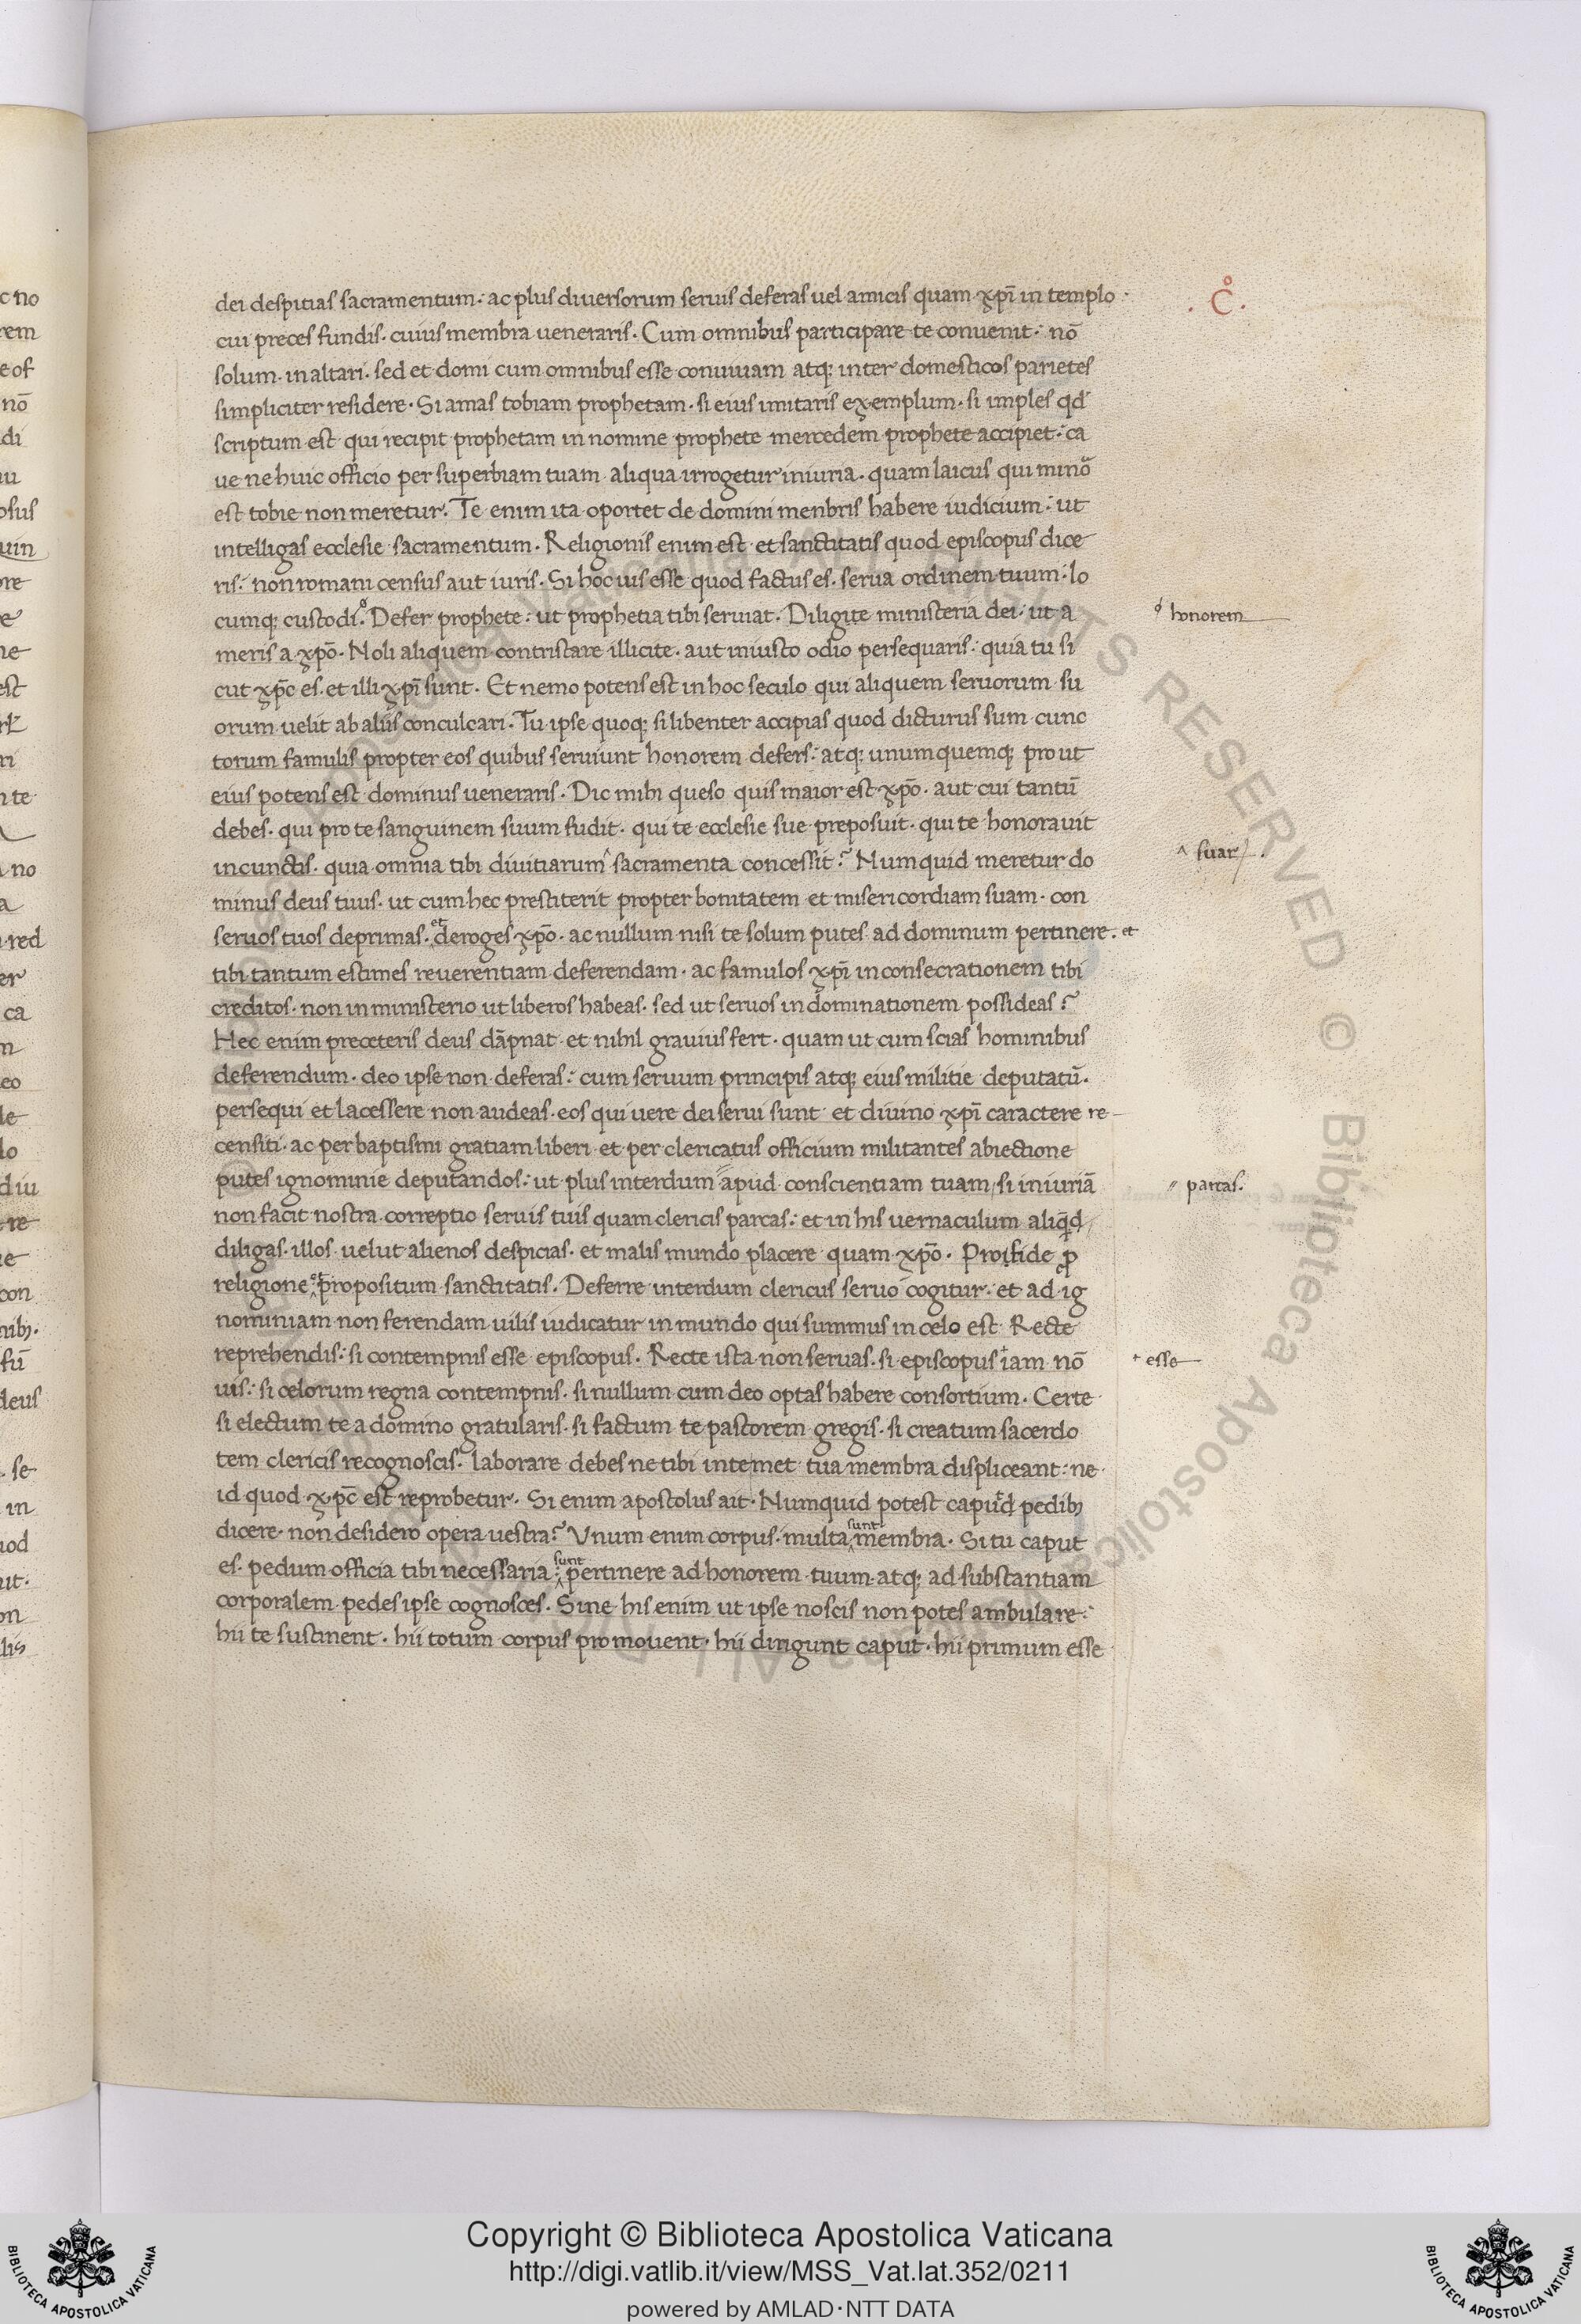 .C°.
dei despitias sacramentum: ac plus diuersorum seruis deferas uel amicis quam xp̄i in templo
cui preces fundis. cuius membra ueneraris. Cum omnibus participare te conuenit: nō
solum in altari. sed et domi cum omnibus esse conuiuam atq; inter domesticos parietes
simpliciter residere. Si amas tobiam prophetam. si eius imitaris exemplum. si imples qd'
scriptum est qui recipit prophetam in nomine prophete mercedem prophete accipiet: ca
ue ne huic officio per superbiam tuam aliqua irrogetur iniuria. quam laicus qui minor
est tobie non meretur. Te enim ita oportet de domini menbris habere iudicium: ut
intelligas ecclesie sacramentum. Religionis enim est et sanctitatis quod episcopus dice
ris: non romani census aut iuris. Si hoc uis esse quod factus es. serua ordinem tuum: lo
cumq; custodi. Defer prophete: ut prophetia tibi seruiat. Diligite ministeria dei: ut a
honorem
meris a xp̄o. Noli aliquem contristare illicite. aut iniusto odio persequaris: quia tu si
cut xp̄c es. et illi xp̄i sunt. Et nemo potens est in hoc seculo qui aliquem seruorum su
orum uelit ab aliis conculcari. Tu ipse quoq; si libenter accipias quod dicturus sum cunc
torum famulis propter eos quibus seruiunt honorem defers: atq; unumquemq; prout
eius potens est dominus ueneraris. Dic mihi queso quis maior est xp̄o. aut cui tantū
debes. qui pro te sanguinem suum fudit. qui te ecclesie sue preposuit. qui te honorauit
in cunctis. quia omnia tibi diuitiarum^ sacramenta concessit? Numquid meretur do
^ suar
minus deus tuus. ut cum hec prestiterit propter bonitatem et misericordiam suam. con
seruos tuos deprimas. et deroges xp̄o. ac nullum nisi te solum putes ad dominum pertinere. et
tibi tantum estimes reuerentiam deferendam. ac famulos xp̄i in consecrationem tibi
creditos. non in ministerio ut liberos habeas. sed ut seruos in dominationem possideas?
Hec enim preceteris deus dāpnat et nihil grauius fert. quam ut cum scias hominibus
deferendum. deo ipse non deferas: cum seruum principis atq; eius militie deputatū.
persequi et lacessere non audeas. eos qui uere dei serui sunt et diuino xp̄i caractere re-
censiti. ac per baptismi gratiam liberi et per clericatus officium militantes abiectione
putes ignominie deputandos: ut plus interdum apud conscientiam tuam, si iniuriā
parcas.
non facit nostra correptio seruis tuis quam clericis parcas: et in his uernaculum aliq̄d
diligas. illos uelut alienos despicias. et malis mundo placere quam xp̄o. Proh fide ꝓ
religione et propositum sanctitatis. Deferre interdum clericus seruo cogitur: et ad ig
nominiam non ferendam uilis iudicatur in mundo qui summus in celo est. Recte
reprehendis: si contempnis esse episcopus. Recte ista non seruas. si episcopus + iam nō
+ esse
uis: si celorum regna contempnis. si nullum cum deo optas habere consortium. Certe
si electum te a domino gratularis. si factum te pastorem gregis. si creatum sacerdo
tem clericis recognoscis: laborare debes ne tibi intemet tua membra displiceant: ne
id quod xp̄c est reprobetur. Si enim apostolus ait. Numquid potest capud pedib;
dicere non desidero opera uestra? Vnum enim corpus. multa sunt membra. Si tu caput
es. pedum officia tibi necessaria sunt: pertinere ad honorem tuum atq; ad substantiam
corporalem pedes ipse cognosces. Sine his enim ut ipse noscis non potes ambulare:
hii te sustinent. hii totum corpus promouent. hii dirigunt caput. hii primum esse
Copyright © Biblioteca Apostolica Vaticana
http://digi.vatlib.it/view/MSS_Vat.lat.352/0211
powered by AMLAD·NTT DATA
BIBLIOTECA APOSTOLICA VATICANA
BIBLIOTECA APOSTOLICA VATICANA